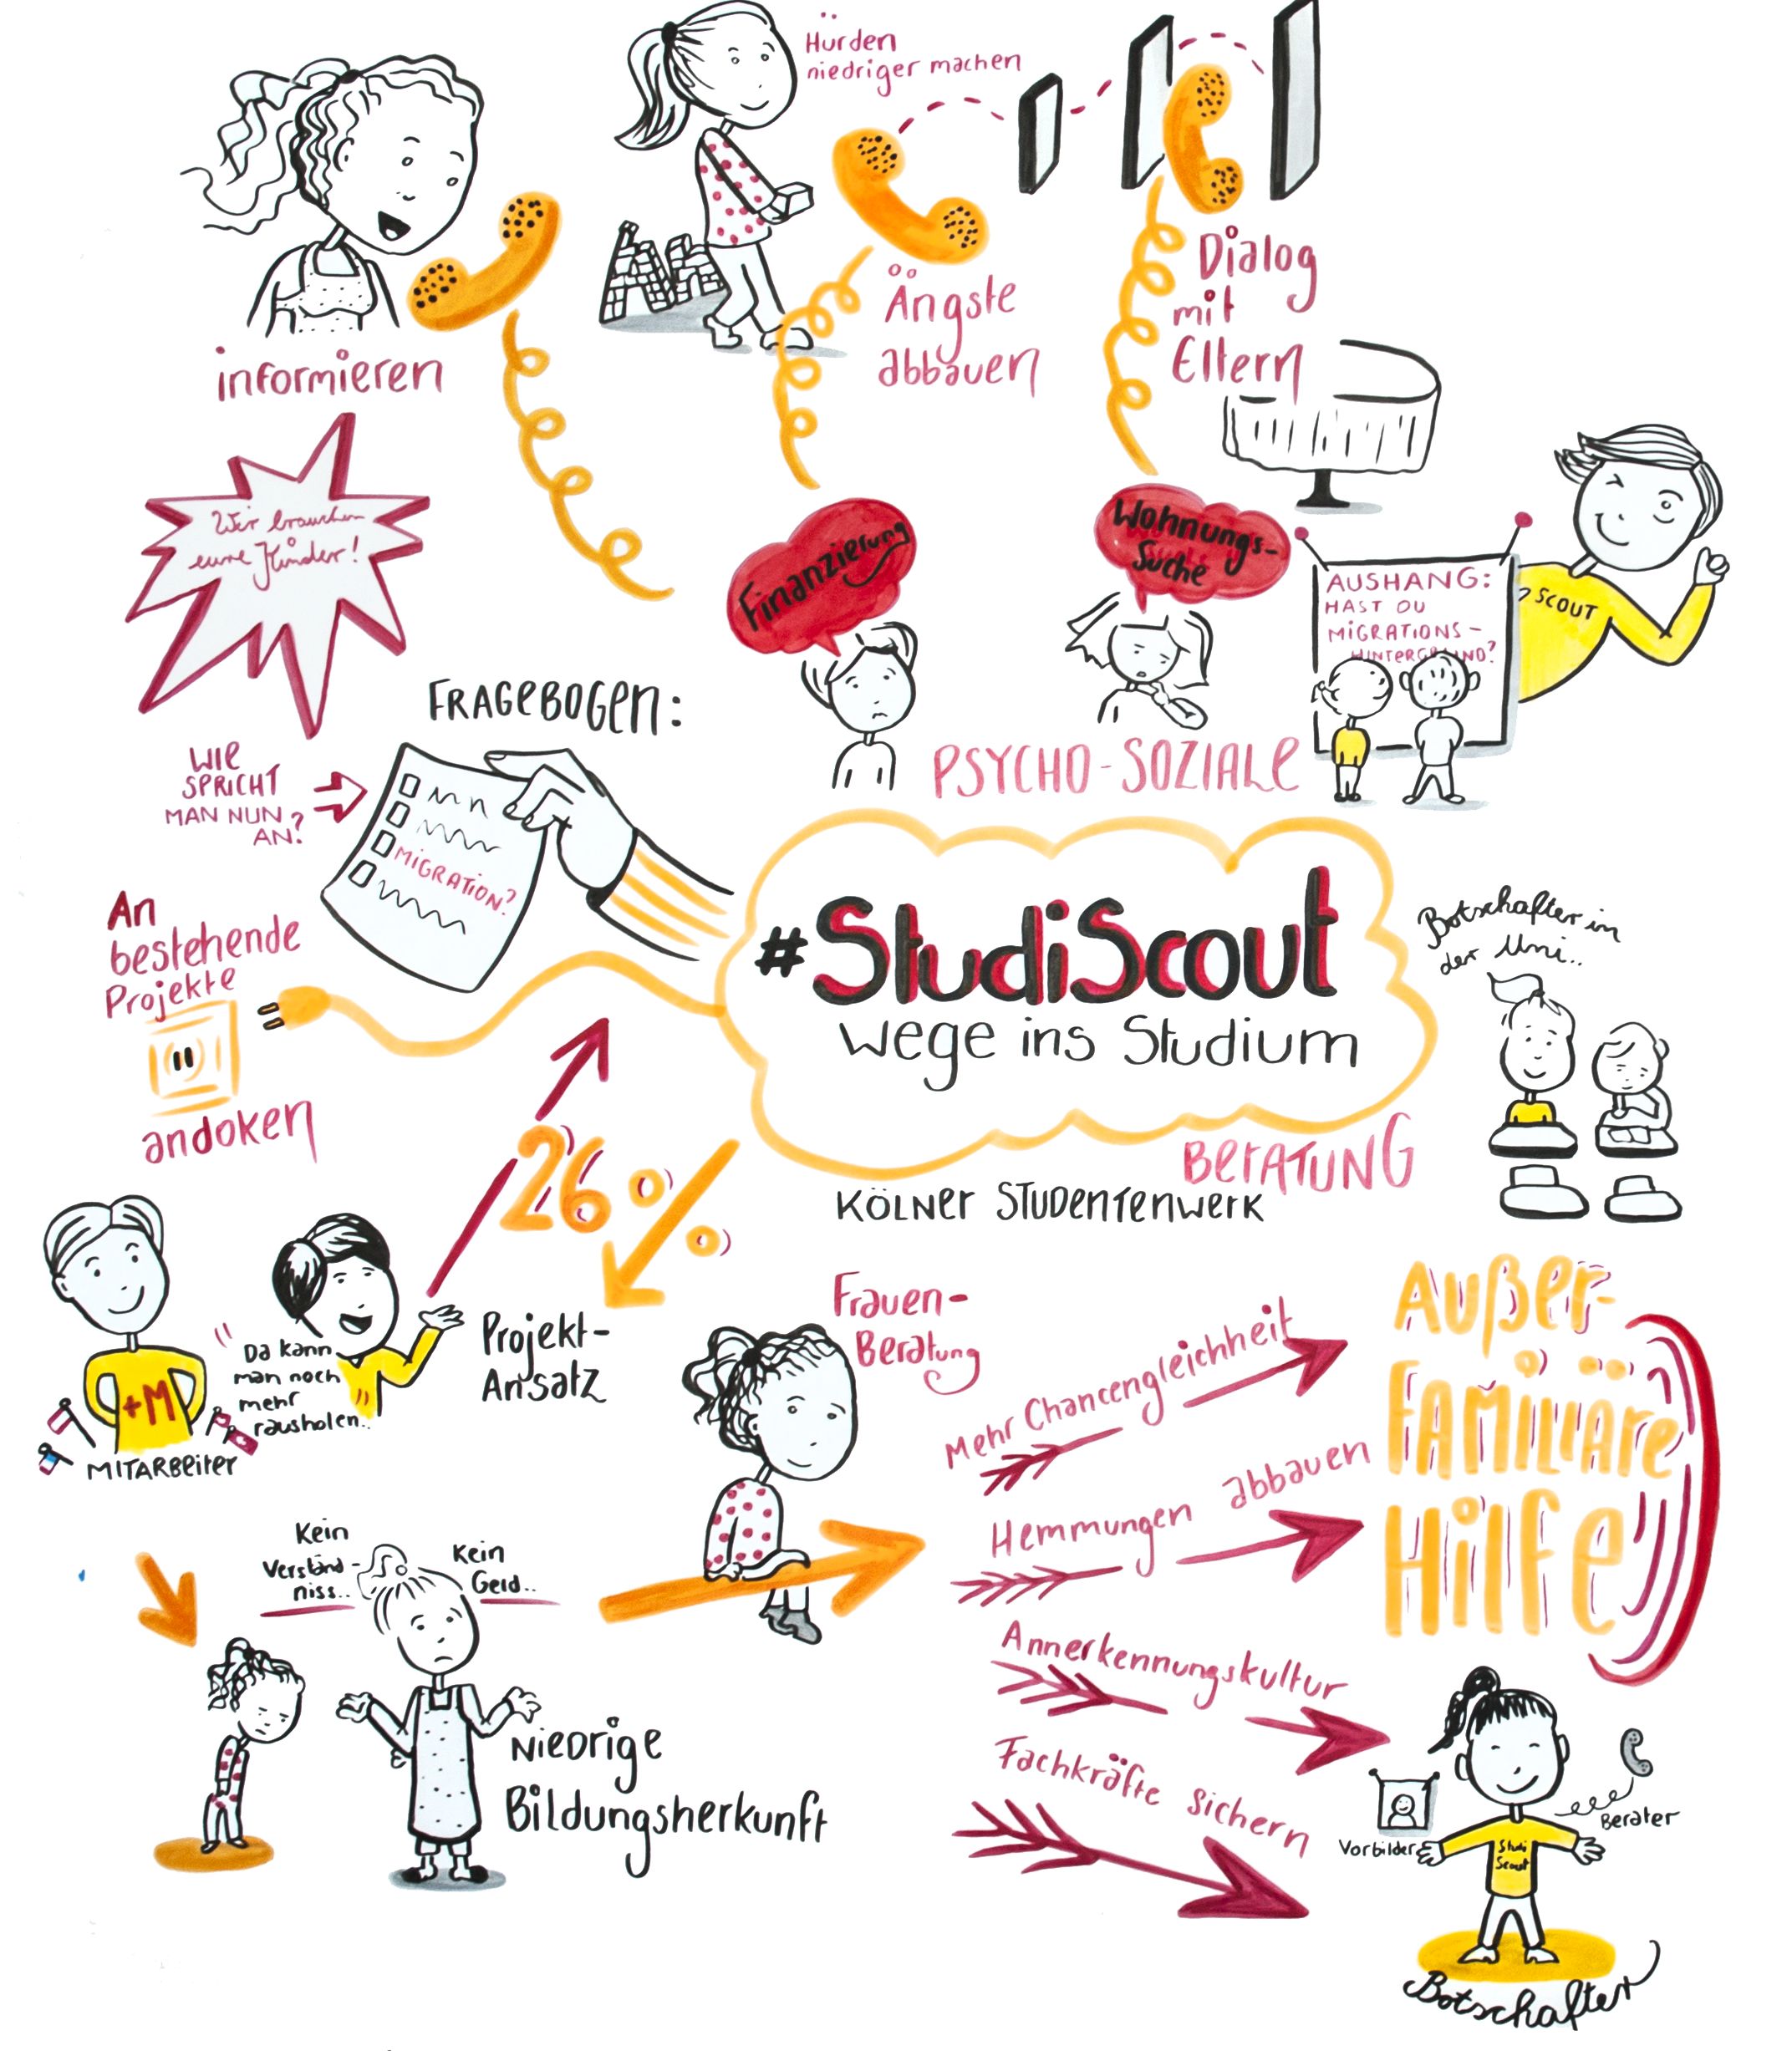 Hürden
niedriger machen
informieren
Ängste
abbauen
Dialog
mit
Eltern
Wir brauchen
eure Kinder!
Finanzierung
Wohnungs-
Suche
AUSHANG:
HAST DU
MIGRATIONS-
HINTERGRUND?
SCOUT
FRAGEBOGEN:
WIE
SPRICHT
MAN NUN
AN?
MIGRATION?
PSYCHO-SOZIALE
An
bestehende
Projekte
andoken
#StudiScout
wege ins Studium
BERATUNG
KÖLNER STUDENTENWERK
Botschafter in
der Uni..
26%
+M
MITARBEITER
"Da kann
man noch
mehr
rausholen.."
Projekt-
Ansatz
Frauen-
Beratung
Mehr Chancengleichheit
Hemmungen abbauen
Annerkennungskultur
Fachkräfte sichern
Außer-
FAMILIÄre
Hilfe
Kein
Verständ-
niss..
Kein
Geld..
Niedrige
Bildungsherkunft
Vorbilder
Berater
Studi
Scout
Botschafter